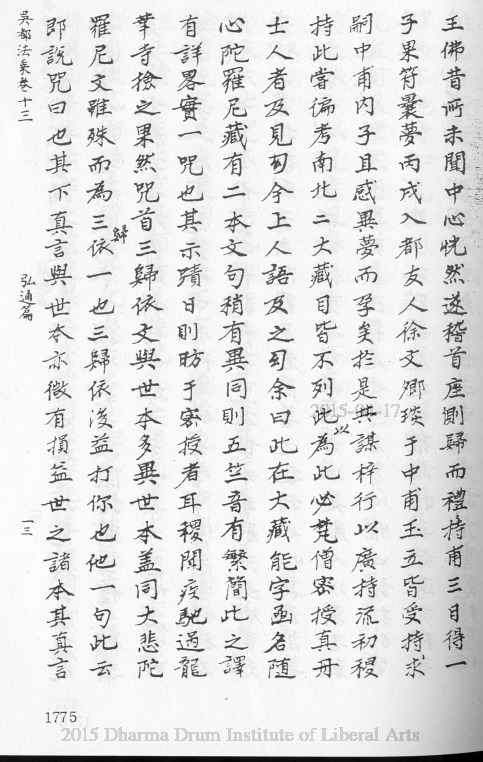 王佛昔所未聞中心恍然遂稽首座側歸而禮持甫三日得一
子果符曩夢丙戌入都友人徐文卿琰于中甫王立皆受持求
嗣中甫內子且感異夢而孕矣於是共謀梓行以廣持流初稷
持此嘗徧考南北二大藏目皆不列此以為此必梵僧密授真丹
士人者及見幻余上人語及之幻余曰此在大藏能字函名隨
心陀羅尼藏有二本文句稍有異同則五竺音有繁簡此之譯
有詳畧實一咒也其示蹟日則昉于密授者耳稷聞疾馳過龍
華寺撿之果然咒首三歸依文與世本多異世本盖同大悲陀
羅尼文雖殊而為三依歸一也三歸依後益打你也他一句此云
即說咒曰也其下真言與世本亦微有損益世之諸本其真言
吳都法乘卷十三
弘通篇
一三
1775
2015-04-17
2015 Dharma Drum Institute of Liberal Arts